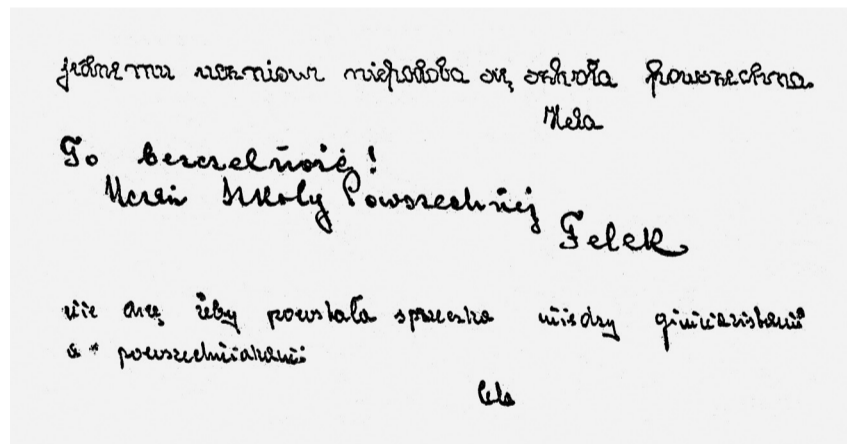 jednemu uczniowi niepodoba się szkoła powszechna.
Hela
To bezczelność!
Uczeń Szkoły Powszechnej
Felek
nie chcę żeby powstała sprzeczka między gimnazistami
a powszechniakami
Lela